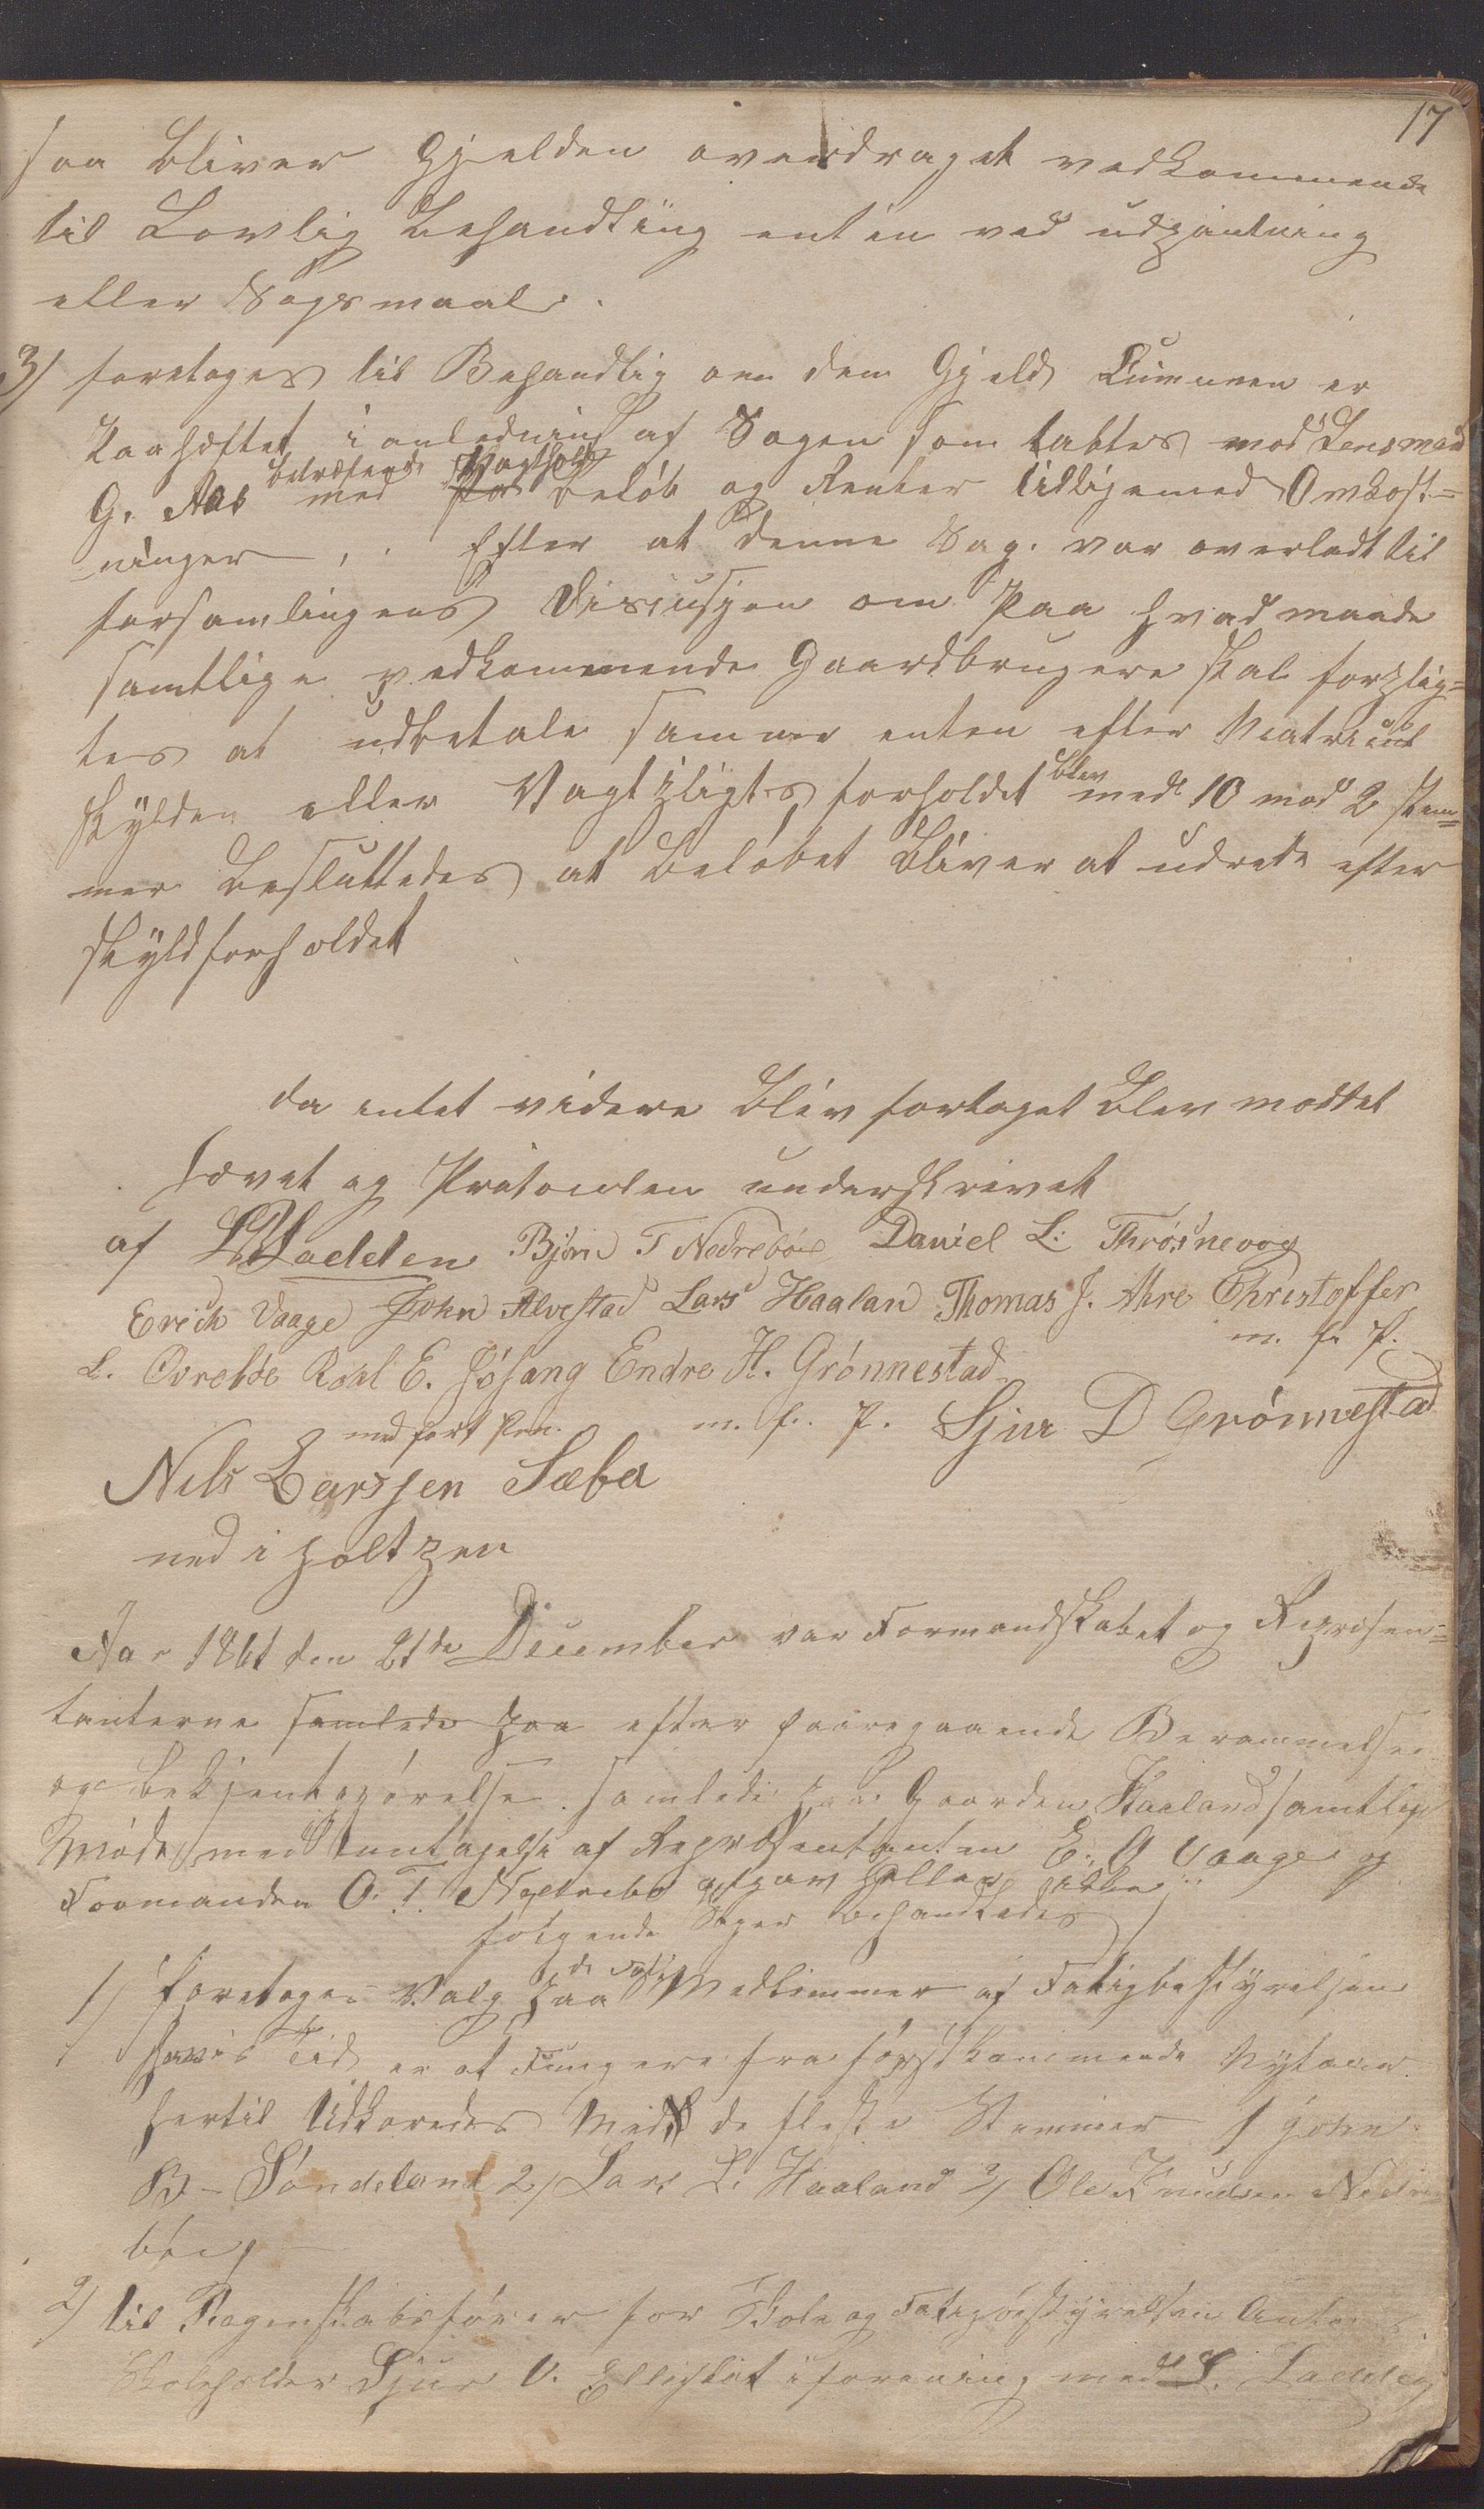 17
saa bliver Gjelden overdraget vedkommende
til Lovlig Behandling enten ved udpantning
eller Søgsmaal.
3) foretoges til Behandlig om den Gjeld Cumunen er
Paahæftet i anledning af Sagen som tabtes mod Lensmand
betræfende Vagthold
G. Aas med beløb og Renter tilligemed Omkost=
=ninger, . Efter at denne Sag. var overladt til
forsamlingens Discusjon om Paa hvad maade
samtlige vedkommende Gaardbrugere skal forplig=
tes at udbetale samme enten efter Matricul
skylden eller Vagtpligts forholdet blev med 10 mod 2 stem=
mer besluttedes at beløbet bliver at udrede efter
skyldforholdet
da intet videre blev fortaget blev mødtet
hævet og Protocolen underskrevet
af L. Ladden Bjørn T Nedrebøe Daniel L: Thrøsnevog
Erich Vaage John Alvestad Lars Haalan Thomas J. Ahre Christoffer
m. f. P.
L. Øvrebøe Roal E. Jøsang Endre H. Grønnestad
med ført Pen. m. f. P. Sjur D Grønnestad
Nils Larssen Sæbø
ved i holt pen
Aar 1861 den 21de December var Formandskabet og Repræsen=
tanterne samlede paa efter foregaaende Berammelse
og bekjentgjørelse samlede paa Gaarden Haaland samtlige
Møde med undtagelse af Repræsentanten E. A Vaage og
Formanden O. T.
følgende Sager behandledes
1) foretoges Valg paa Medlemmer af Fatigbestyrelsen
hvis Tid er at Fungere fra førstkommende Nytaar
hertil Udkoredes Med de fleste Stemmer 1 John
B. Søndeland 2) Lars L. Haaland 3) Ole Knudsen Nedre
bøe
2) til Regenskabsfører for Skole og Fatigbestyrelsen Antoges
Skoleholder Sjur V. i forening med L. Ladden